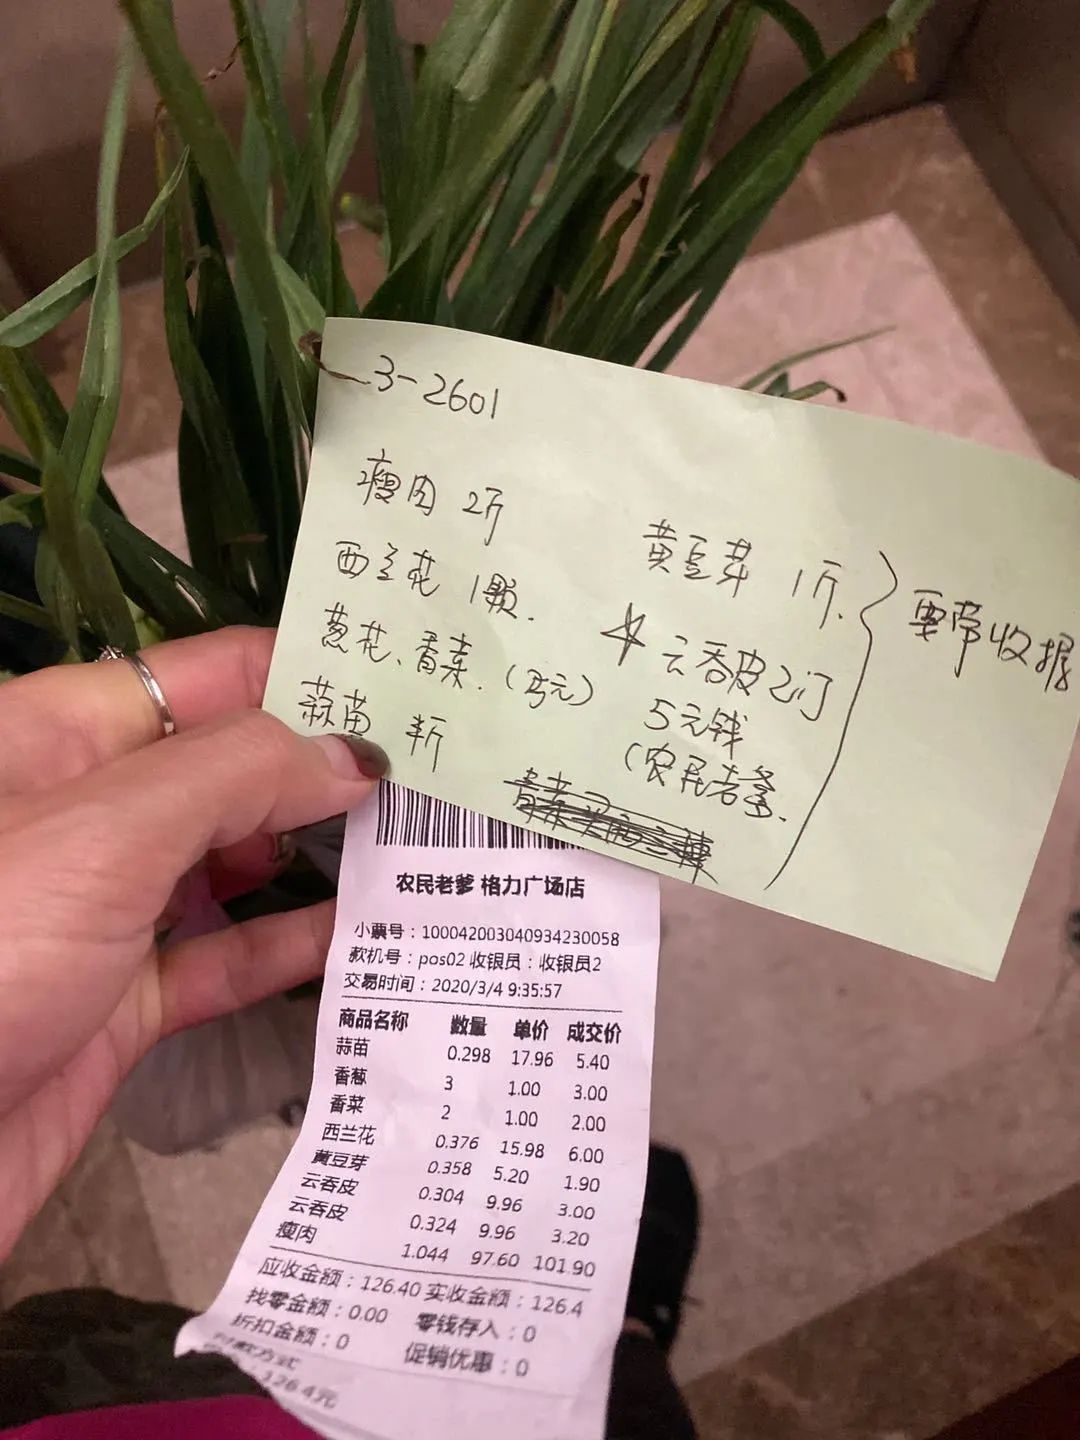 3-2601
瘦肉 2斤
西兰花 1颗.
葱花、香菜.（5元）
蒜苗 半斤
黄豆芽 1斤.
☆云吞皮2门
5元钱
（农民老爹.
要带收据
农民老爹 格力广场店
小票号：100042003040934230058
款机号：pos02 收银员：收银员2
交易时间：2020/3/4 9:35:57
商品名称 数量 单价 成交价
蒜苗 0.298 17.96 5.40
香葱 3 1.00 3.00
香菜 2 1.00 2.00
西兰花 0.376 15.98 6.00
黄豆芽 0.358 5.20 1.90
云吞皮 0.304 9.96 3.00
云吞皮 0.324 9.96 3.20
瘦肉 1.044 97.60 101.90
应收金额：126.40 实收金额：126.4
找零金额：0.00 零钱存入：0
折扣金额：0 促销优惠：0
付款方式
：126.4元